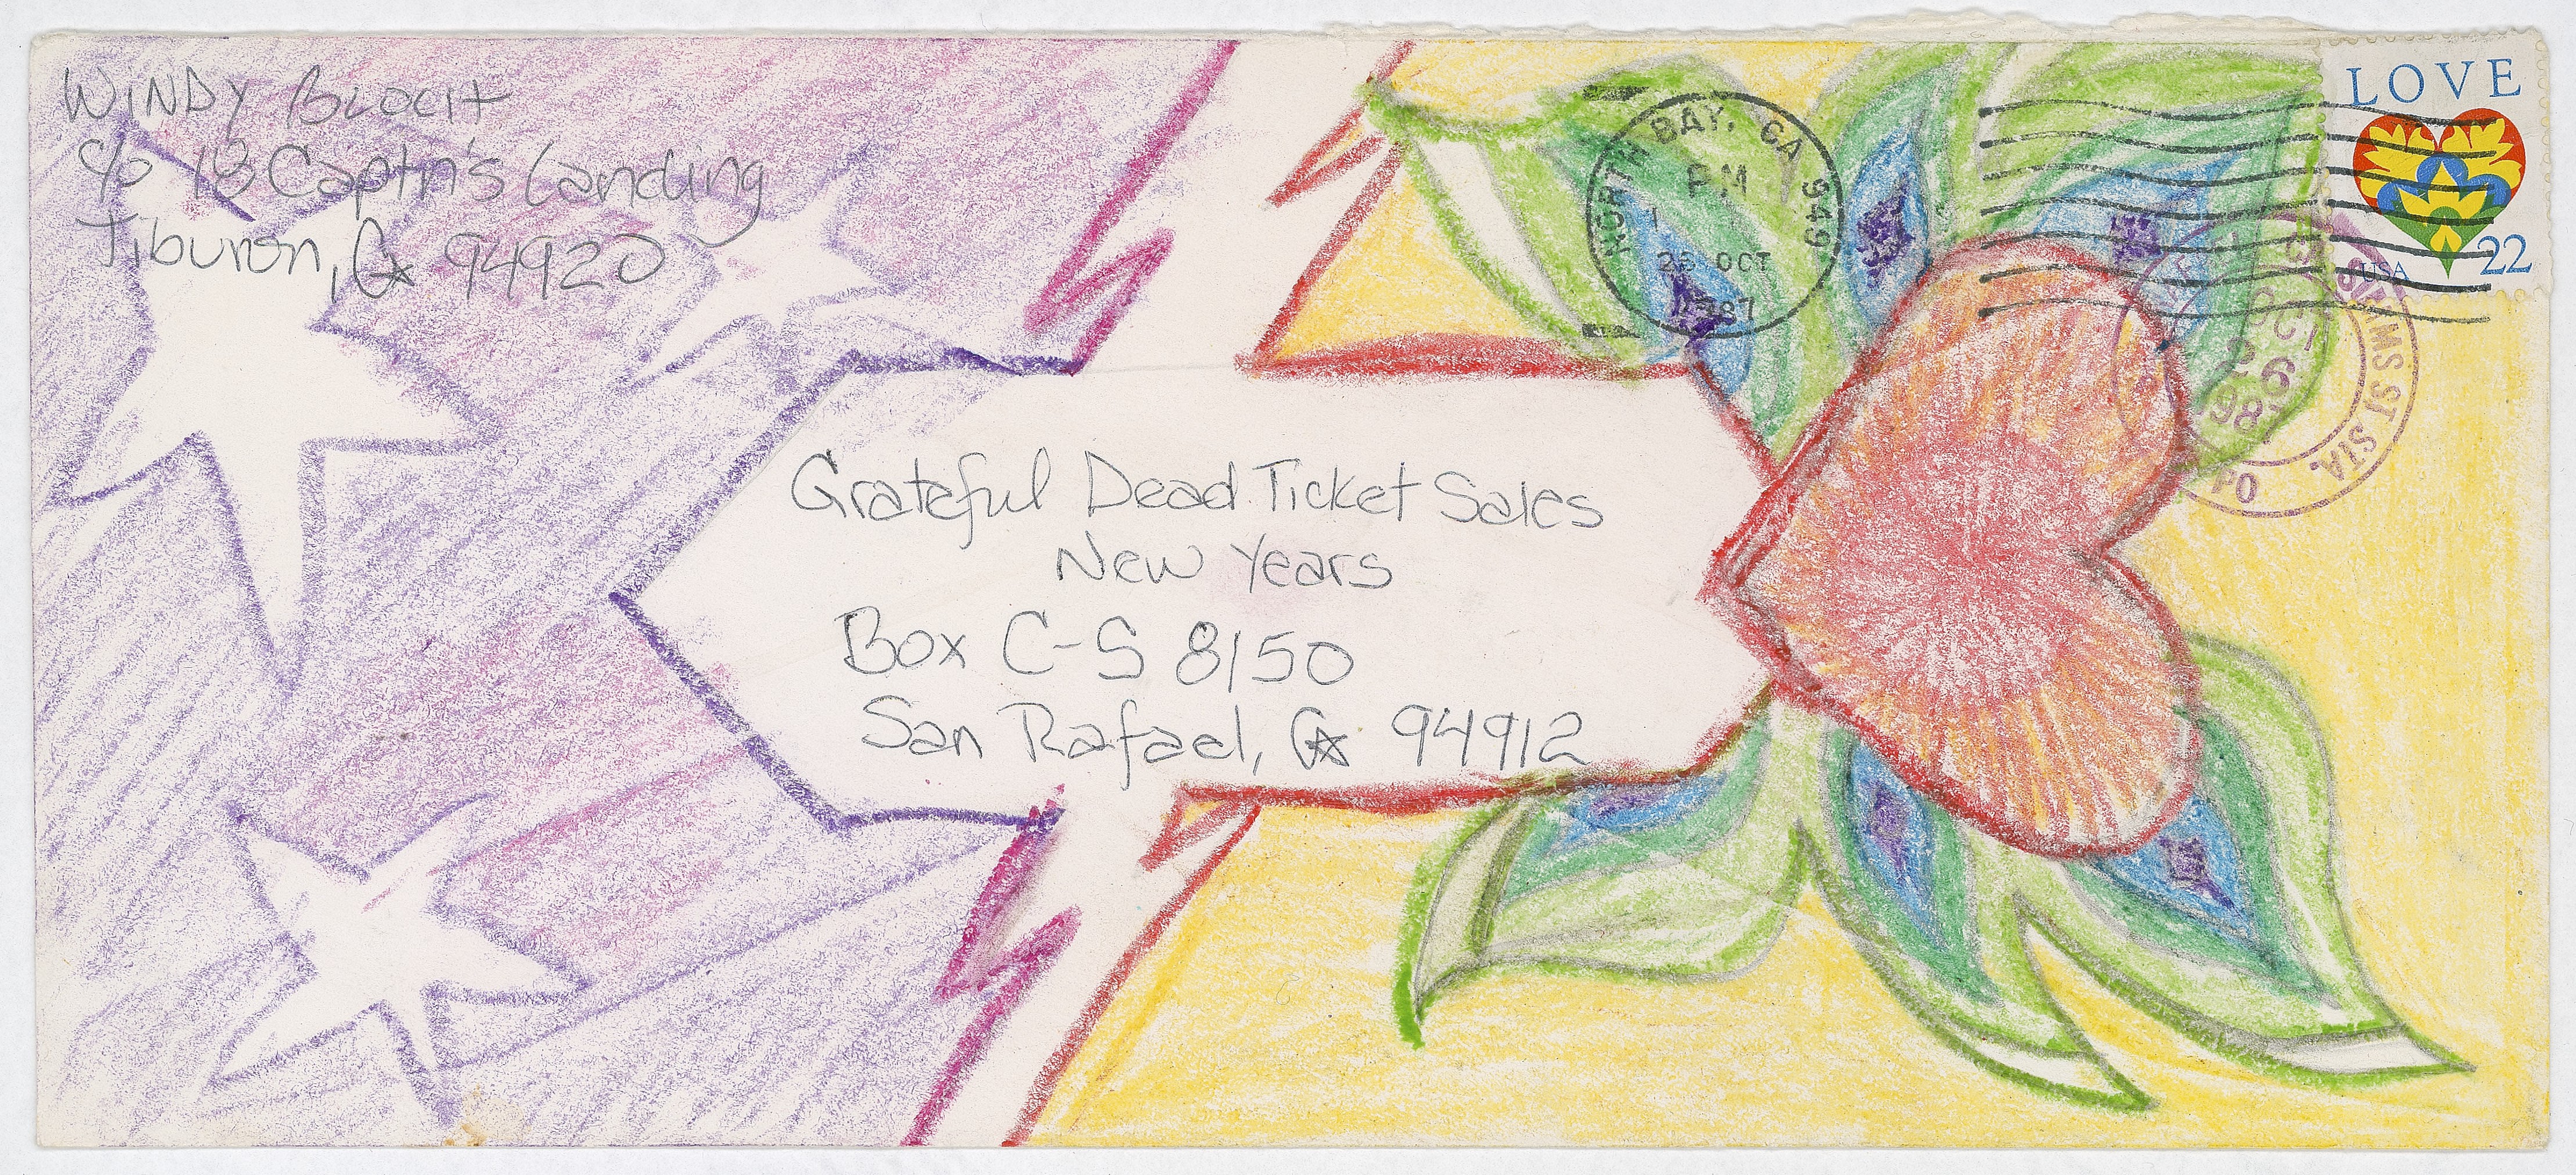 WINDY BLOCH
c/o 18 Captn's Landing
Tiburon, CA 94920
LOVE
USA 22
NORTH BAY, CA 949
PM
1987
OCT
26
198
MS ST STA.
PO
Grateful Dead Ticket Sales
New Years
Box C-S 8150
San Rafael, CA 94912